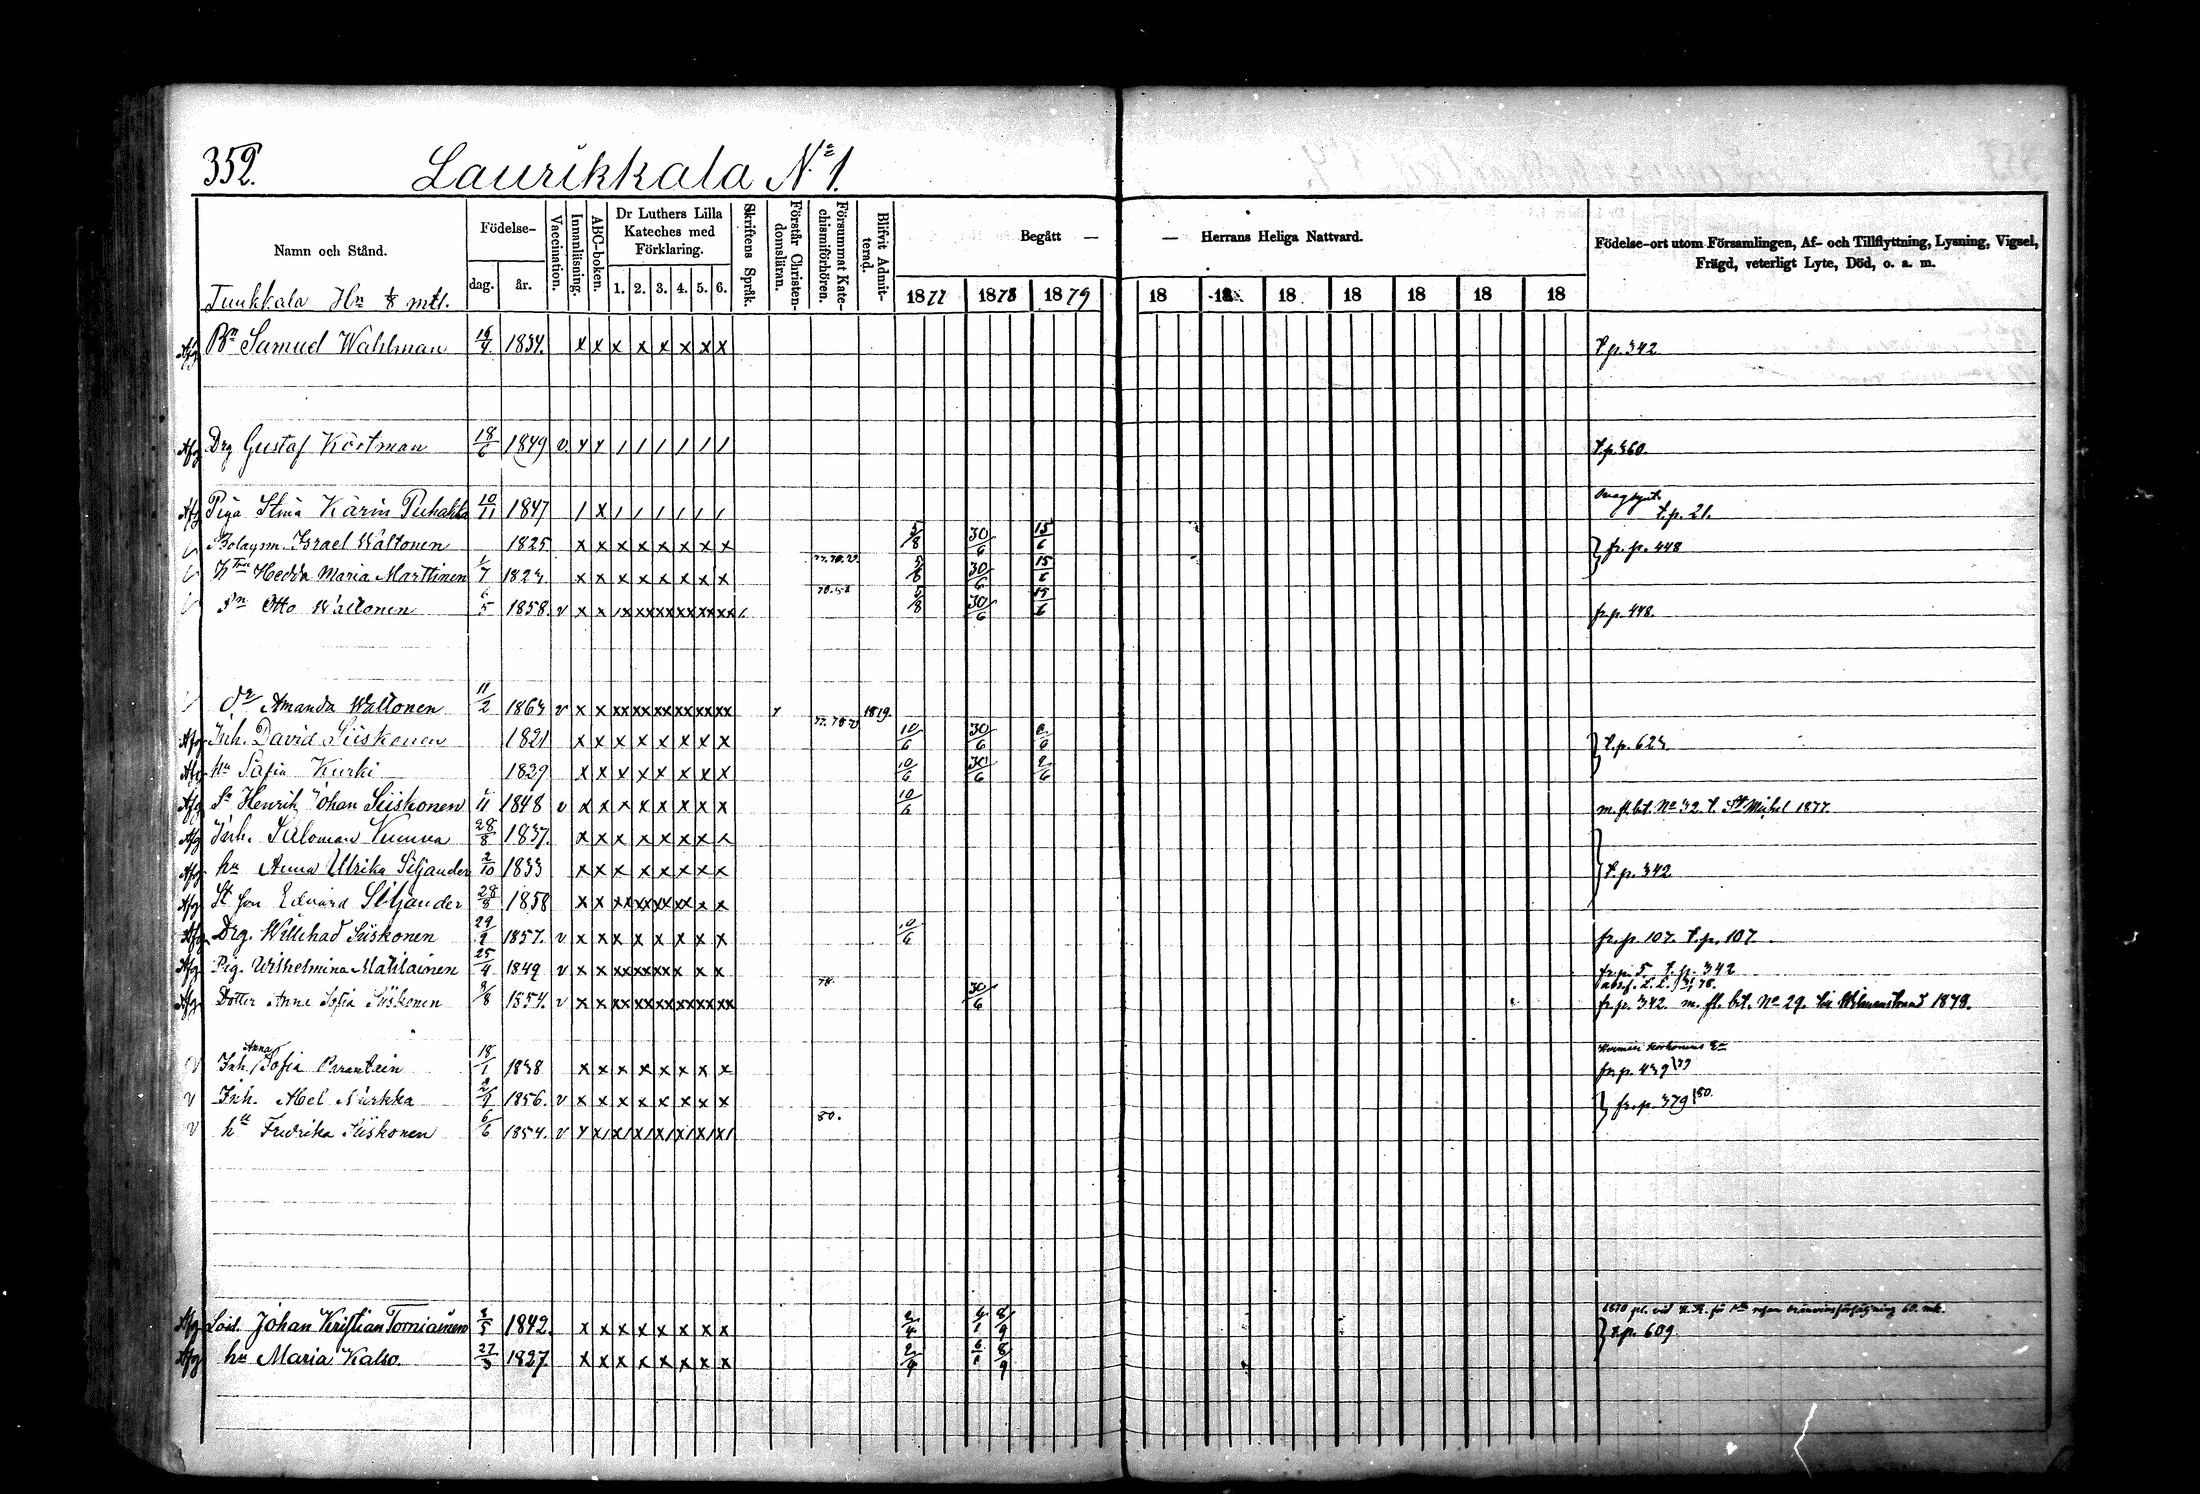 352.
Laurikkala No 1.
Namn och Stånd.
Födelse-
dag. år.
Vaccination.
Innanläsning.
ABC-boken.
Dr Luthers Lilla Kateches med Förklaring.
1. 2. 3. 4. 5. 6.
Skriftens Språk.
Förstår Christendomsläran.
Försummat Katechismiförhören.
Blifvit Admitterad.
Begått — — Herrans Heliga Nattvard.
1877 1878 1879 18 18 18 18 18 18 18
Födelse-ort utom Församlingen, Af- och Tillflyttning, Lysning, Vigsel, Frägd, veterligt Lyte, Död, o. a. m.
Tuukkala Hn 1/8 mtl.
Afg Bn Samuel Wahlman 1834. x x x x x x x x t.p. 342
Afg Drg Gustaf Köstman 18/6 1849 v. x x / / / / / / t.p. 360.
Afg Piga Stina Karin Puhakka 10/11 1847 / x / / / / / / t.p. 21.
v Bolagsm. Israel Waltonen 1825 x x x x x x x x 5/8 30/6 15/6 } fr. p. 448
v Hedda Maria Marttinen 1/7 x x x x x x x x 5/8 30/6 15/6
v Sn Otto Waltonen 6/5 1858. v x x 5/8 30/6 15/6 fr. p. 448.
v dr Amanda Waltonen 11/2 v x x xx xx xx xx xx xx
Afg Inh. David Siiskonen 1821 x x x x x x x x 10/6 30/6
Afg hu Sofia Kurki 1829 x x x x x x x x 10/6 30/6 2/6
Afg Sn Henrik Johan Siiskonen 1848 v x x x x x x x x 10/6 m. fl. bet. No 32 t. St Michel 1877.
Afg Inh. Saloman 28/8 1837. x x x x x x x x
Afg hu Anna Ulrika Siljander 2/10 1833 x x x x x x x x } t.p. 342
Afg St son Edvard Siljander 28/8 1858 x x
Afg Drg. Willehad Siiskonen 29/9 1857. v x x x x x x x x fr. p. 107. t. p. 107.
Afg Pig. Wilhelmina Matilainen 25/4 1849 v x x fr. p. 5 t. p. 342
Afg Dotter Anna Sofia Siiskonen 1854. v x x xx xx xx xx xx xx 78. 30/6 fr. p. 342. m. fl. bet. No 29. 1879.
v Inh. Anna Sofia Parantain 18/1 1838 x x x x x x x x fr. p. 439 /79
v Inh. Abel 1856. v x x x x x x x x } fr. p. 379 /80.
v hu Fredrika Siiskonen 6/6 1854. v x x/ x/ x/ x/ x/ x/ x/ 80.
Afg Johan Kristian Torniainen 1842. x x x x x x x x 8/9 } t.p. 609
Afg hu Maria Kalso. 27/3 1827 x x x x x x x x 8/9